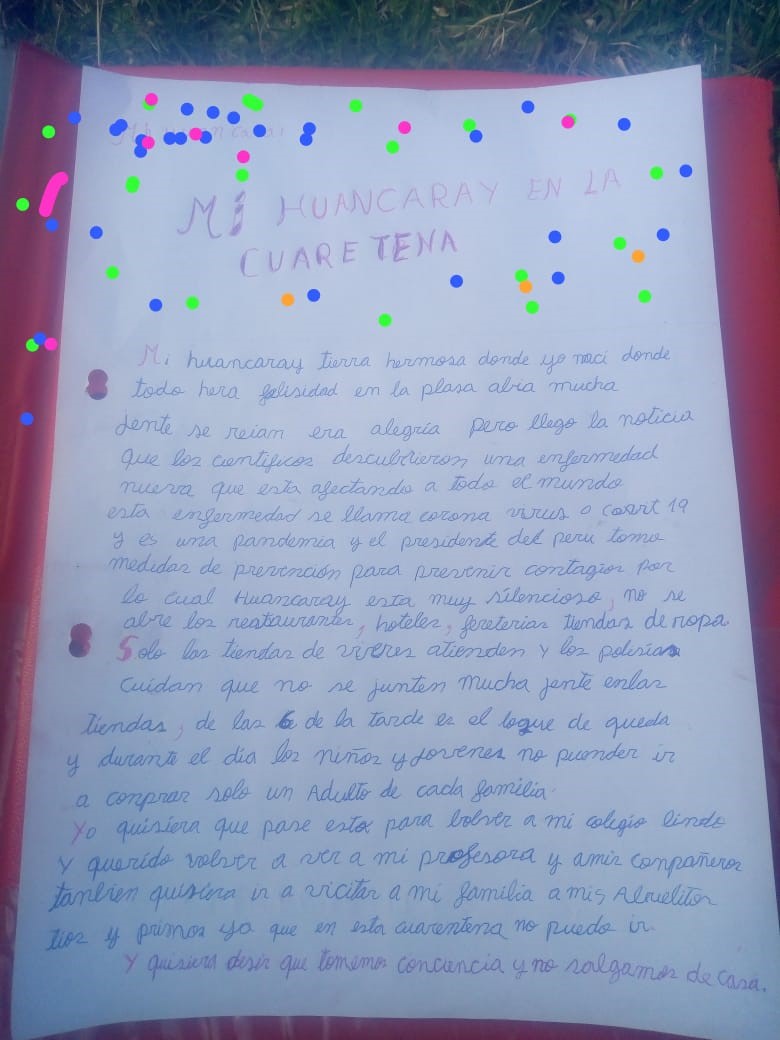 MÍ HUANCARAY EN LA
CUARETENA
Mi huancaray tierra hermosa donde yo naci donde
todo hera felisidad en la plasa abia mucha
jente se reian era alegría pero llego la noticia
que los cientificos descubrieron una enfermedad
nueva que esta afectando a todo el mundo
esta enfermedad se llama corona virus o covit 19
y es una pandemia y el presidente del peru tomo
medidas de prevención para prevenir contagios por
lo cual Huancaray esta muy silencioso, no se
abre los restaurantes, hoteles, fereterias tiendas de ropa
Solo las tiendas de viveres atienden y los polisias
cuidan que no se junten mucha jente enlas
tiendas, de las 6 de la tarde es el toque de queda
y durante el día los niños y jovenes no pueden ir
a comprar solo un Adulto de cada familia.
Yo quisiera que pase esto para bolver a mi colegio lindo
y querido volver a ver a mi profesora y amis conpañeros
tanbien quisiera ir a vicitar a mi familia a mis Abuelitos
tios y primos ya que en esta cuarentena no puedo ir.
Y quisiera desir que tomemos conciencia y no salgamos de casa.